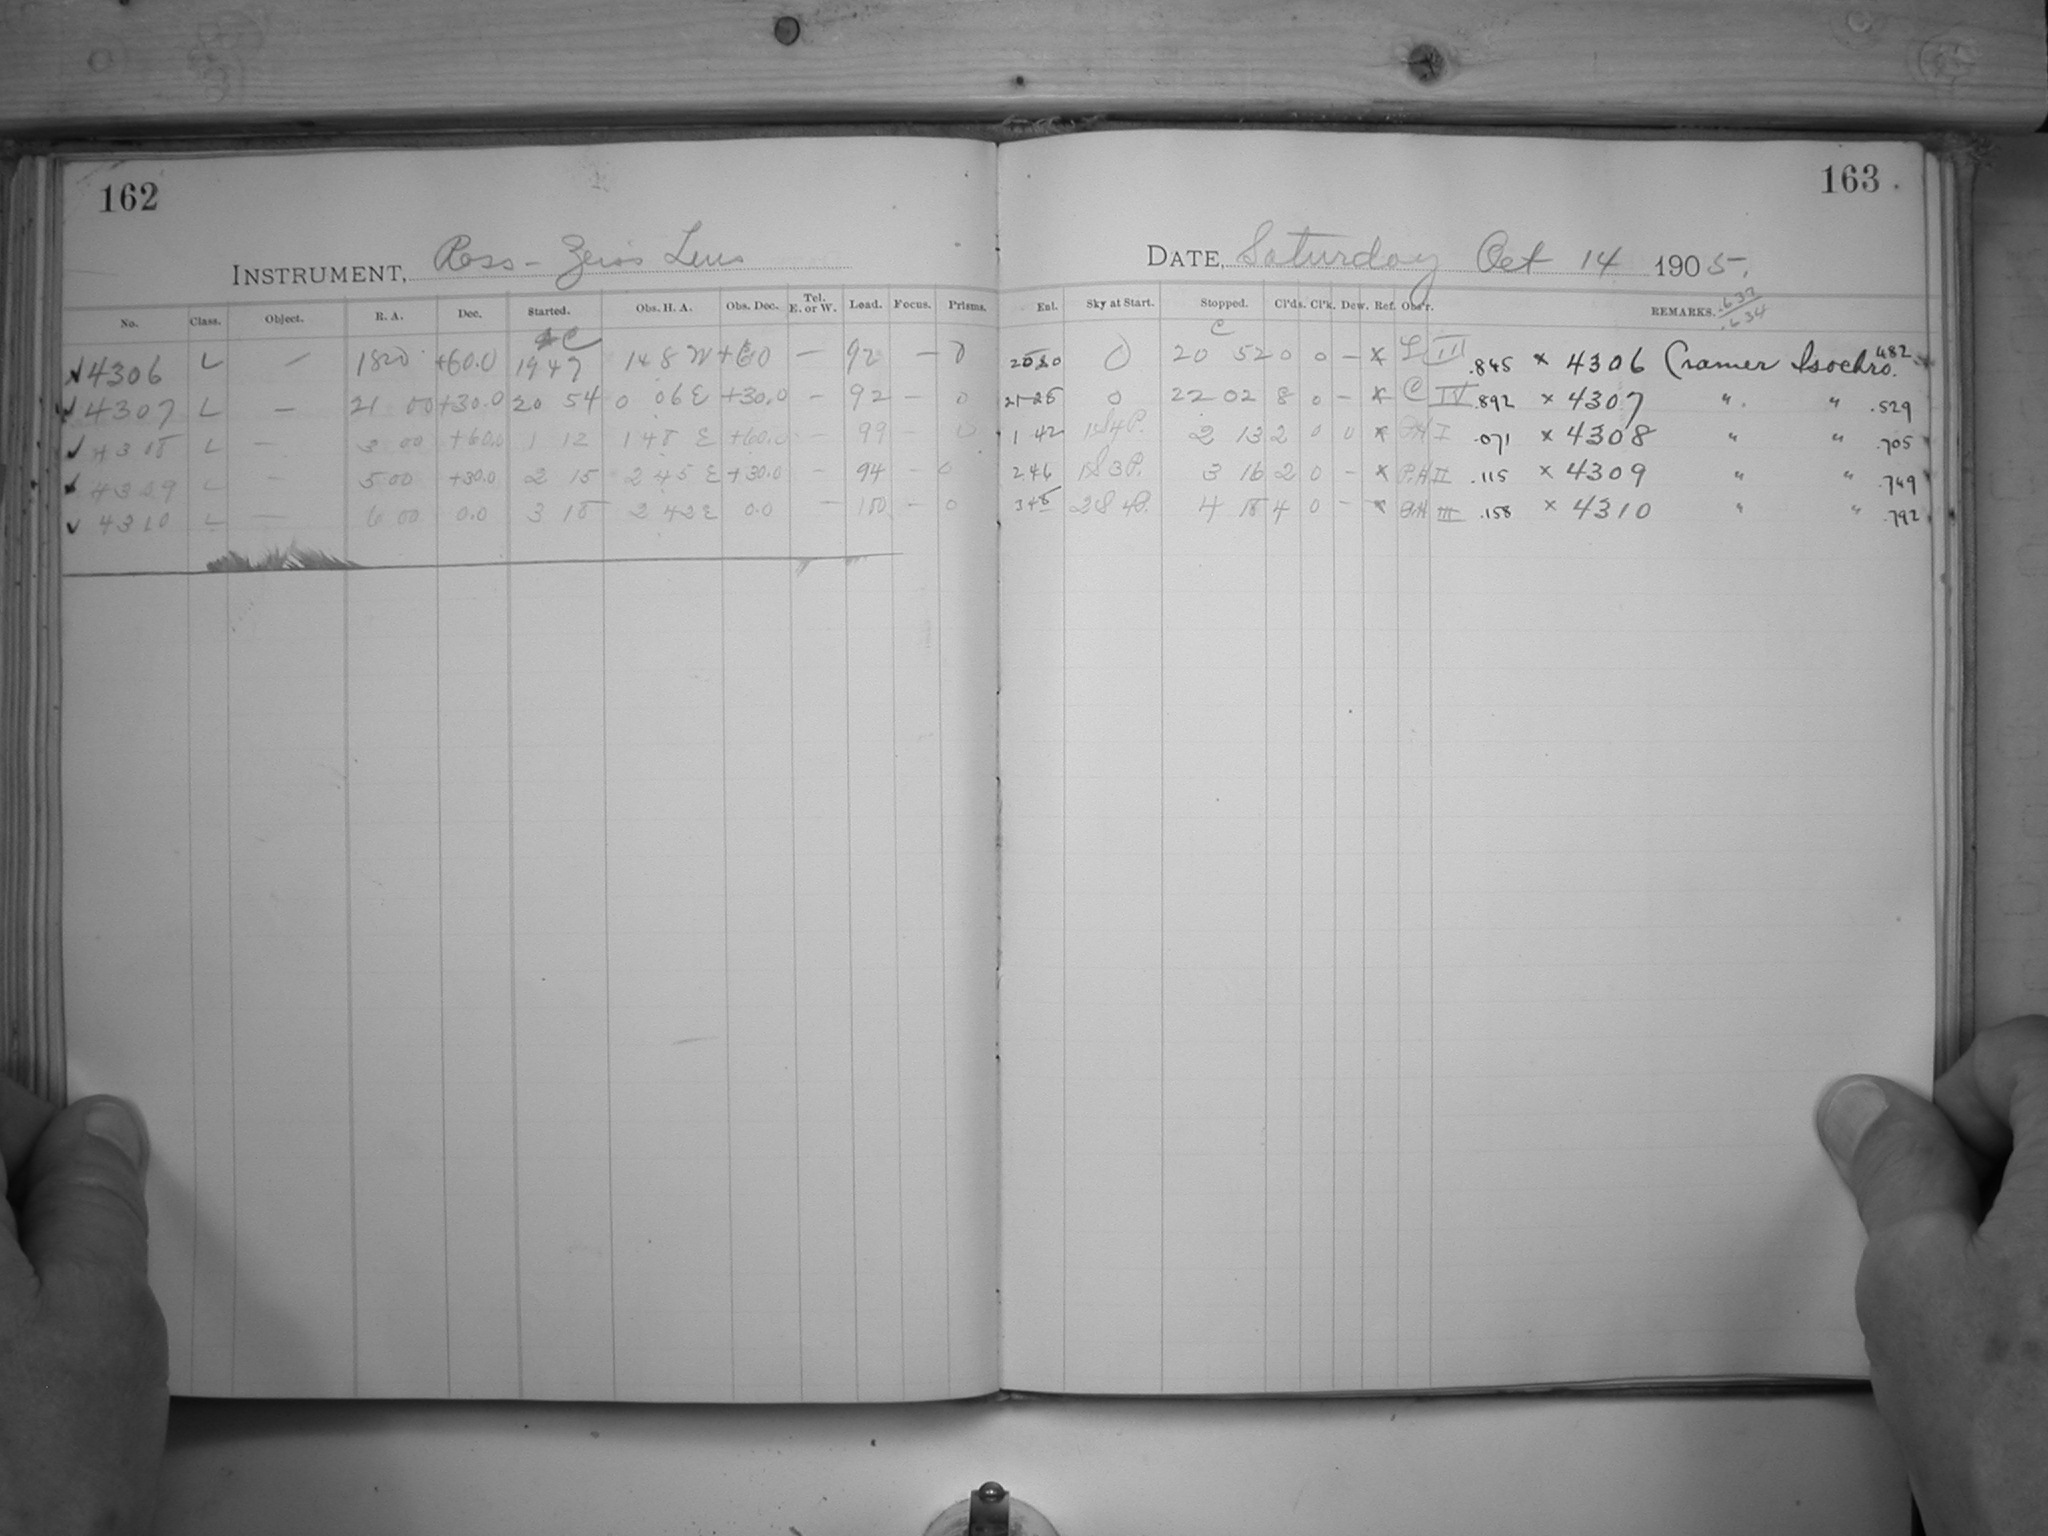 162
INSTRUMENT, Ross-Zeiss Lens
No. Class. Object. R. A. Dec. Started. Obs. H. A. Obs. Dec. Tel. E. or W. Load. Focus. Prisms.
C
4306 L — 18 20 +60.0 19 47 1 48 W +60 — 92 — 0
4307 L — 21 00 +30.0 20 54 0 06 E +30.0 — 92 — 0
4308 L — 3 00 +60.0 1 12 1 48 E +60.0 — 99 — 0
4309 L — 5 00 +30.0 2 15 2 45 E +30.0 — 94 — 0
4310 L — 6 00 0.0 3 18 2 42 E 0.0 — 100 — 0
163
DATE, Saturday Oct 14 1905.
Ent. Sky at Start. Stopped. Cl'ds. Cl'k. Dew. Ref. Obs'r. REMARKS. .634
C
0 20 52 0 0 — × L III .845 × 4306 Cramer Isochro. .482
0 22 02 8 0 — × C IV .892 × 4307 " " .529
1 42 2 13 2 0 0 × I .071 × 4308 " " .705
2 46 3 16 2 0 — × P.H II .115 × 4309 " " .749
3 48 4 18 4 0 — × III .158 × 4310 " " .792